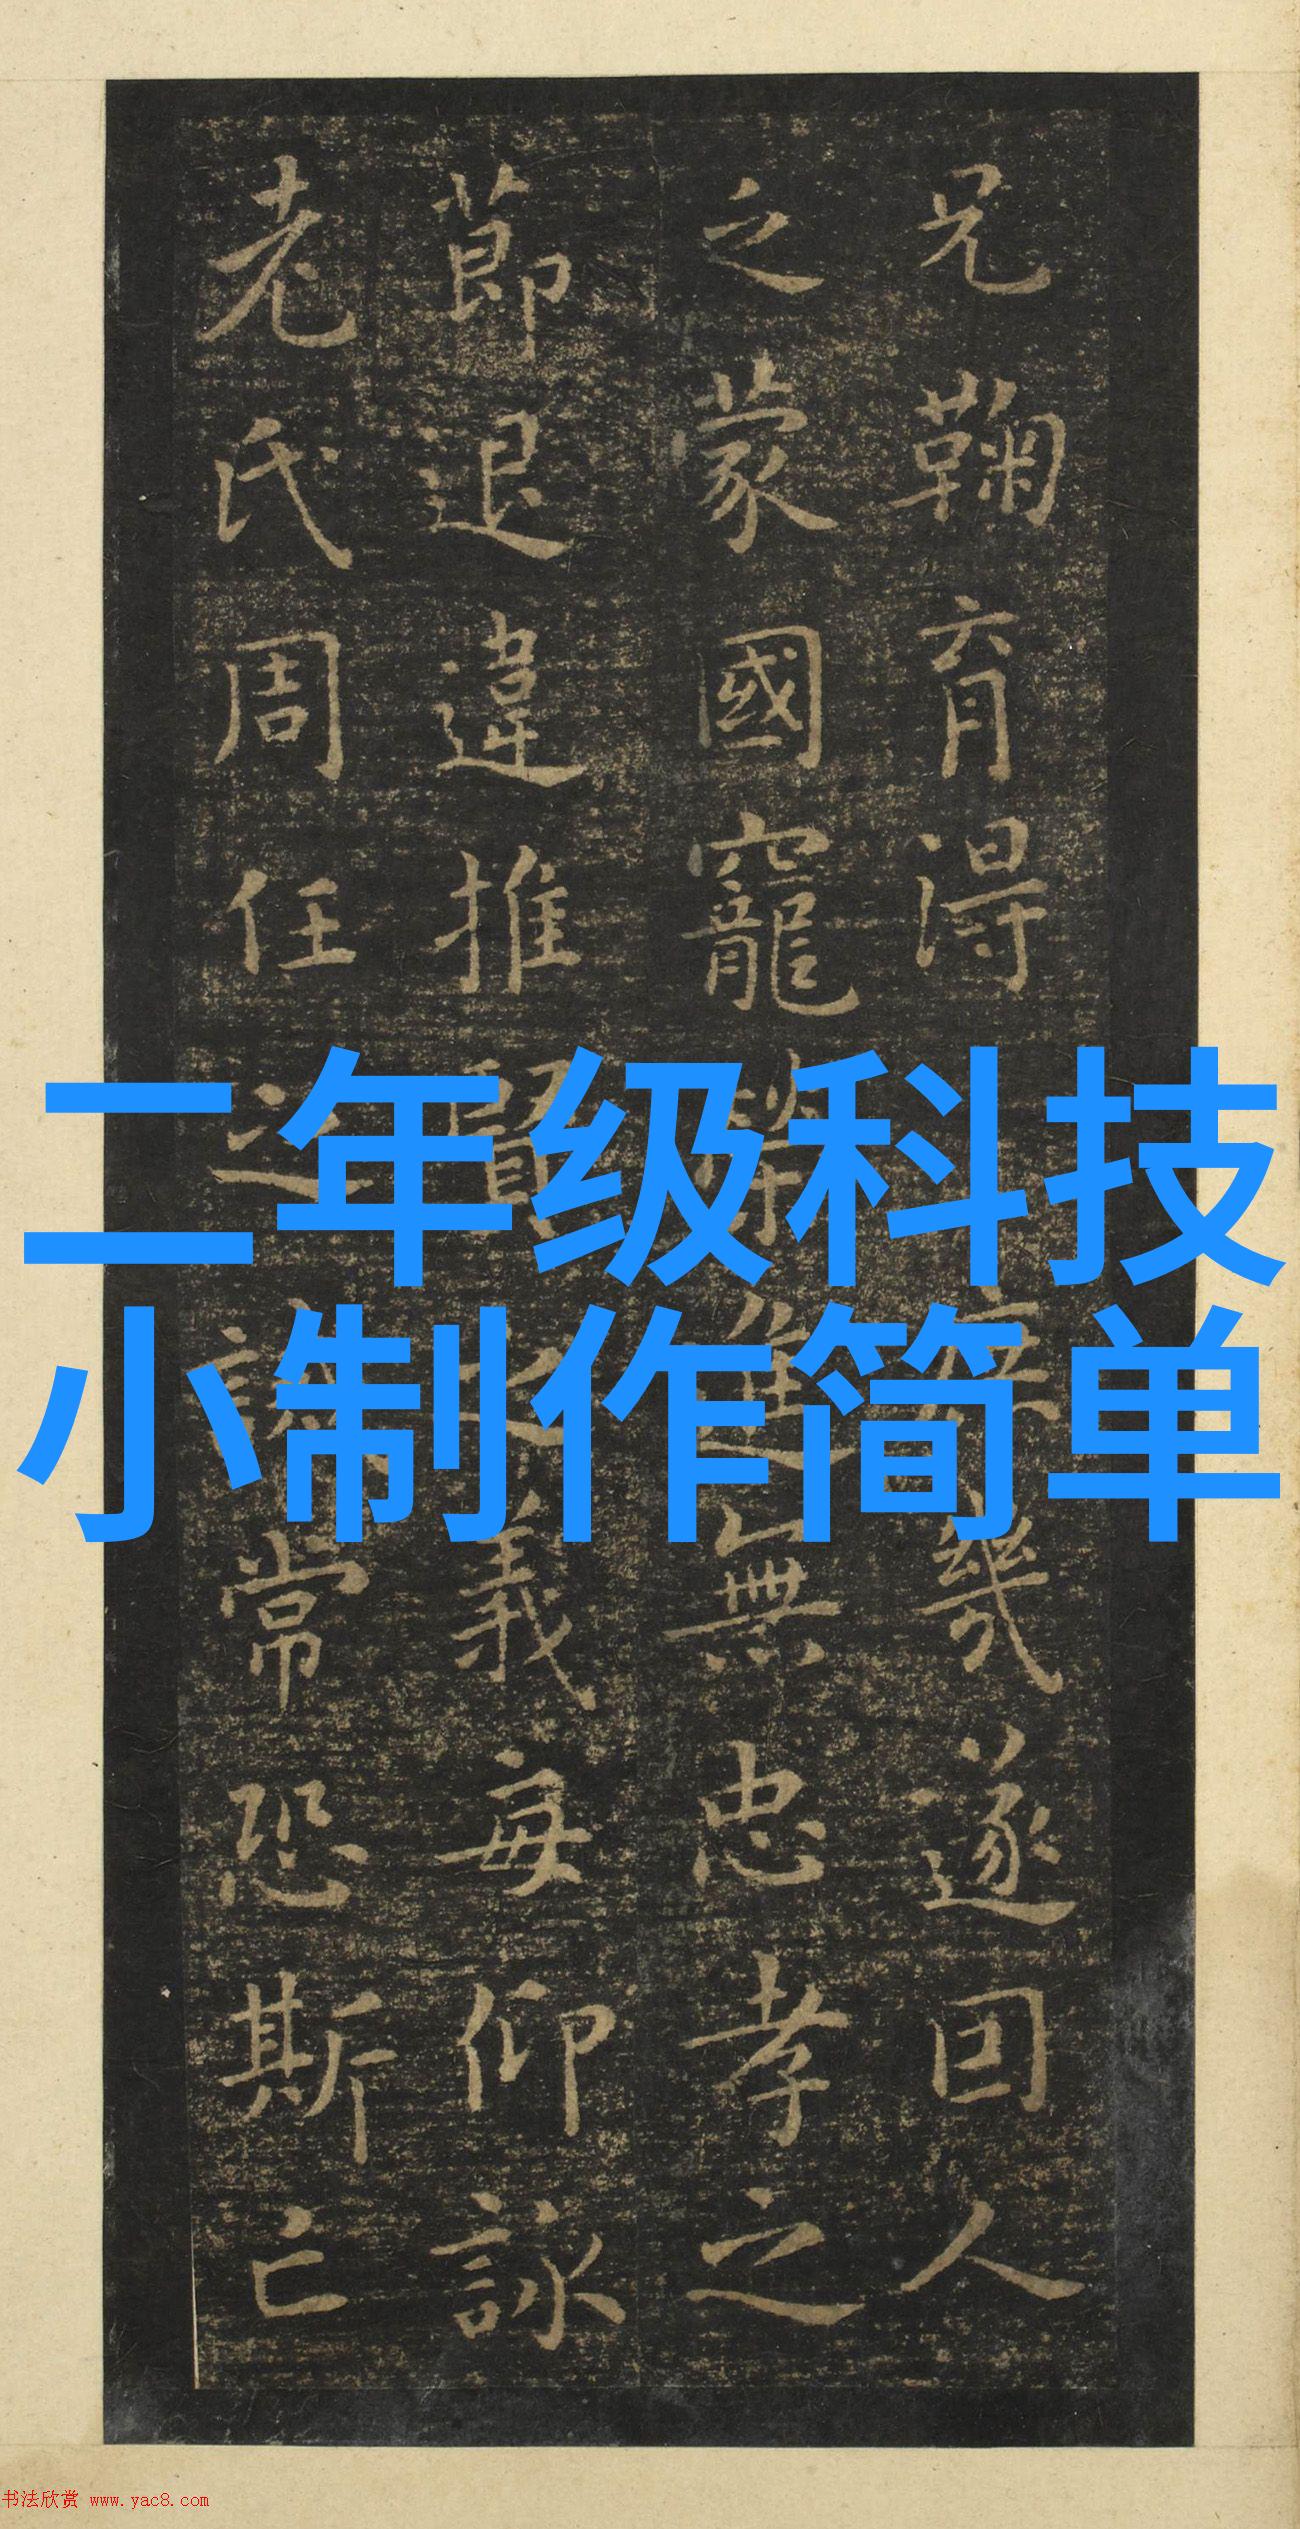 兄鞠育得
遂回人
之蒙國寵
無忠孝之
莭退違推
賢
義每仰詠
老氏周任
之
常恐斯亡
二年级科技
小制作简单
书法欣赏 www.yac8.com